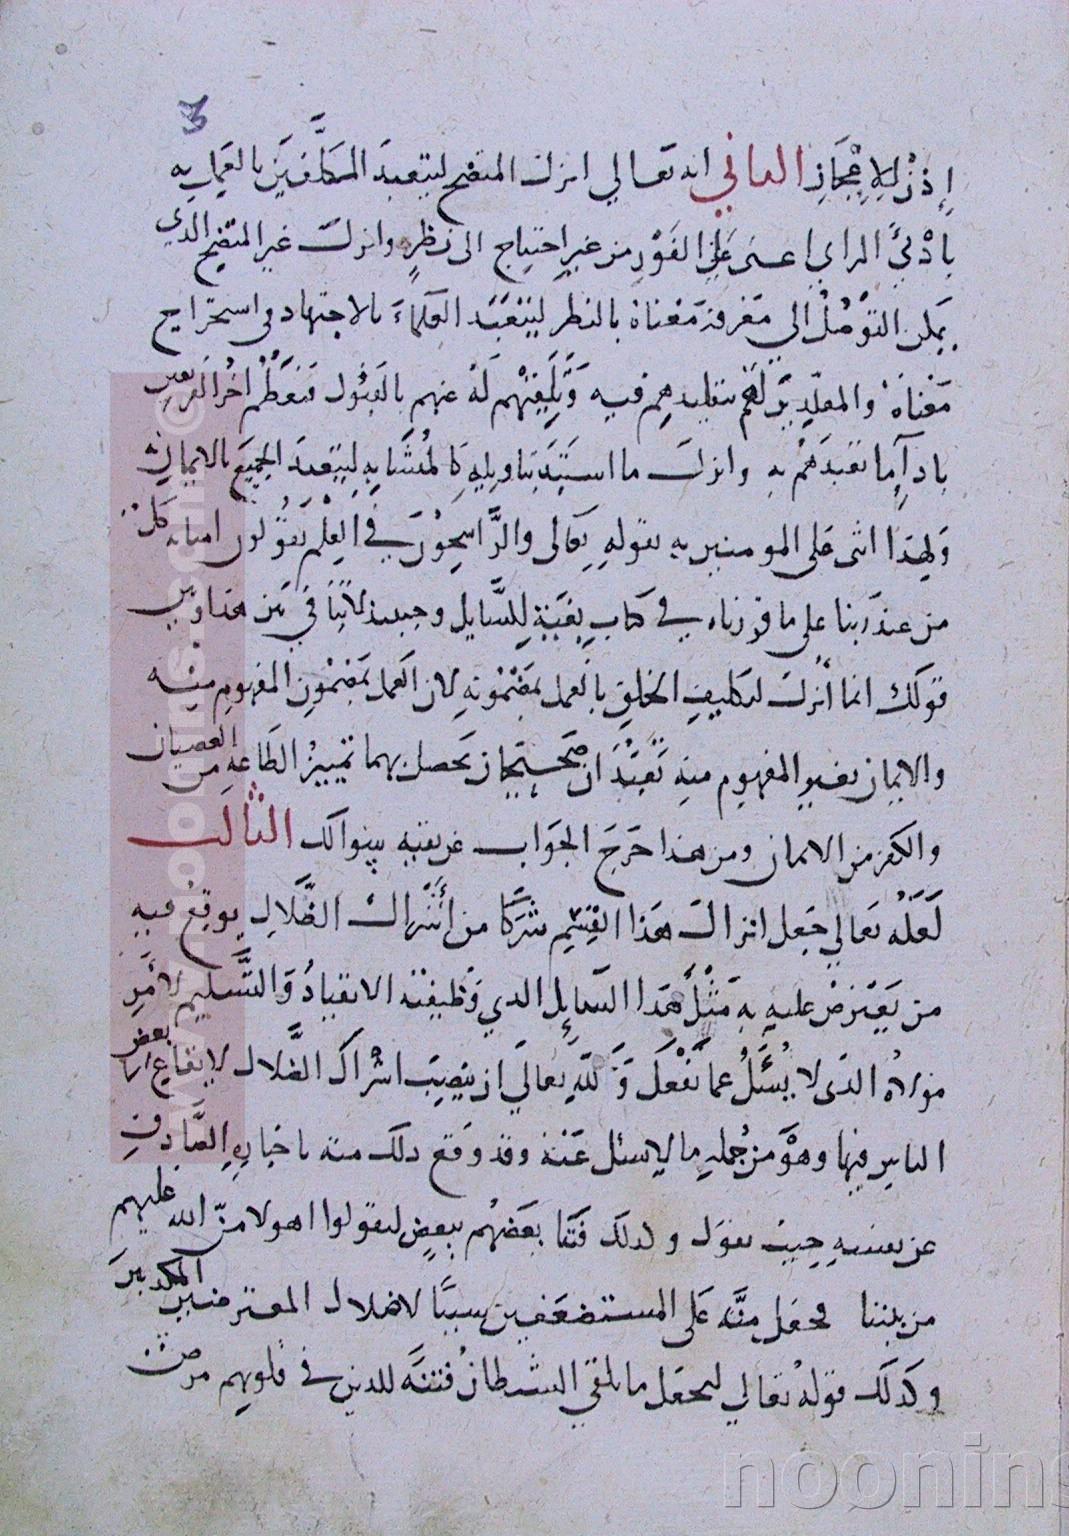 3
إذن للإعجاز الثاني انه تعالى انزل المتضح ليتعبد المكلفين بالعمل به
بادئ الرأي اعنى على الفور من غير احتياج الى نظر وانزل غير المتضح الذي
يمكن التوصل الى معرفة معناه بالنظر ليتعبد العلماء بالاجتهاد في استخراج
معناه والمقلدين لهم بتقليدهم فيه وتلقيهم له عنهم بالقبول فيعظم اجر الفريقين
بادآ ما تعبدهم به وانزل ما استبد بتاويله كالمتشابه ليتعبد الجميع بالايمان
ولهذا اثنى على المومنين به بقوله تعالى والراسخون في العلم يقولون امنا به كل
من عند ربنا على ما قررناه في كتاب بغية السايل وحينئذ لا تنافي بين هذا وبين
قولك انما أنزل لتكليف الخلق بالعمل بمضمونه لان العمل بمضمون المفهوم منه
والايمان بغير المفهوم منه تعبدان صحيحان يحصل بهما تمييز الطاعة من العصيان
والكفر من الايمان ومن هذا خرج الجواب عن بقية سوالك الثالث
لعله تعالى جعل انزال هذا القسم شركا من أشراك الضلال يوقع فيه
من يعترض عليه به مثل هذا السائل الذي وظيفته الانقياد والتسليم لأمر
مولاه الذى لا يسئل عما يفعل ولله تعالى ان ينصب اشراك الضلال لايقاع بعض
الناس فيها وهو من جملة ما لا يسئل عنه وقد وقع ذلك منه باخباره الصادق
عن نفسه حيث يقول وكذلك فتنا بعضهم ببعض ليقولوا اهولا منّ الله عليهم
من بيننا فجعل منّه على المستضعفين سببا لاضلال المعترضين المكذبين
وكذلك قوله تعالى ليجعل ما يلقي الشيطان فتنة للذين في قلوبهم مرض
www.noonins.com ©
noonins